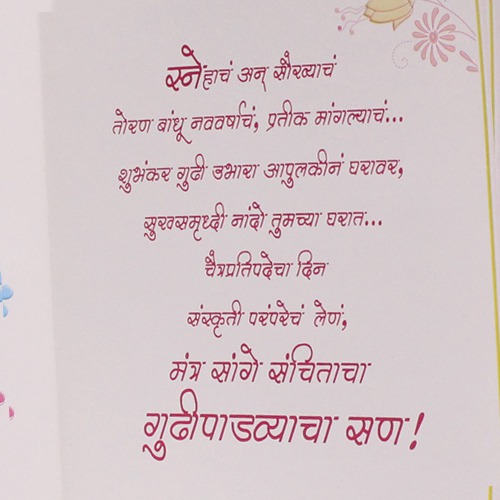 स्नेहाचं अन् सौख्याचं
तोरण बांधू नववर्षाचं, प्रतीक मांगल्याचं...
शुभंकर गुढी उभारा आपुलकीनं घरावर,
सुखसमृध्दी नांदो तुमच्या घरात...
चैत्रप्रतिपदेचा दिन
संस्कृती परंपरेचं लेणं,
मंत्र सांगे संचिताचा
गुढीपाडव्याचा सण!